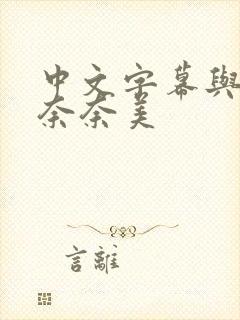 中文字幕與
奈奈美
言離